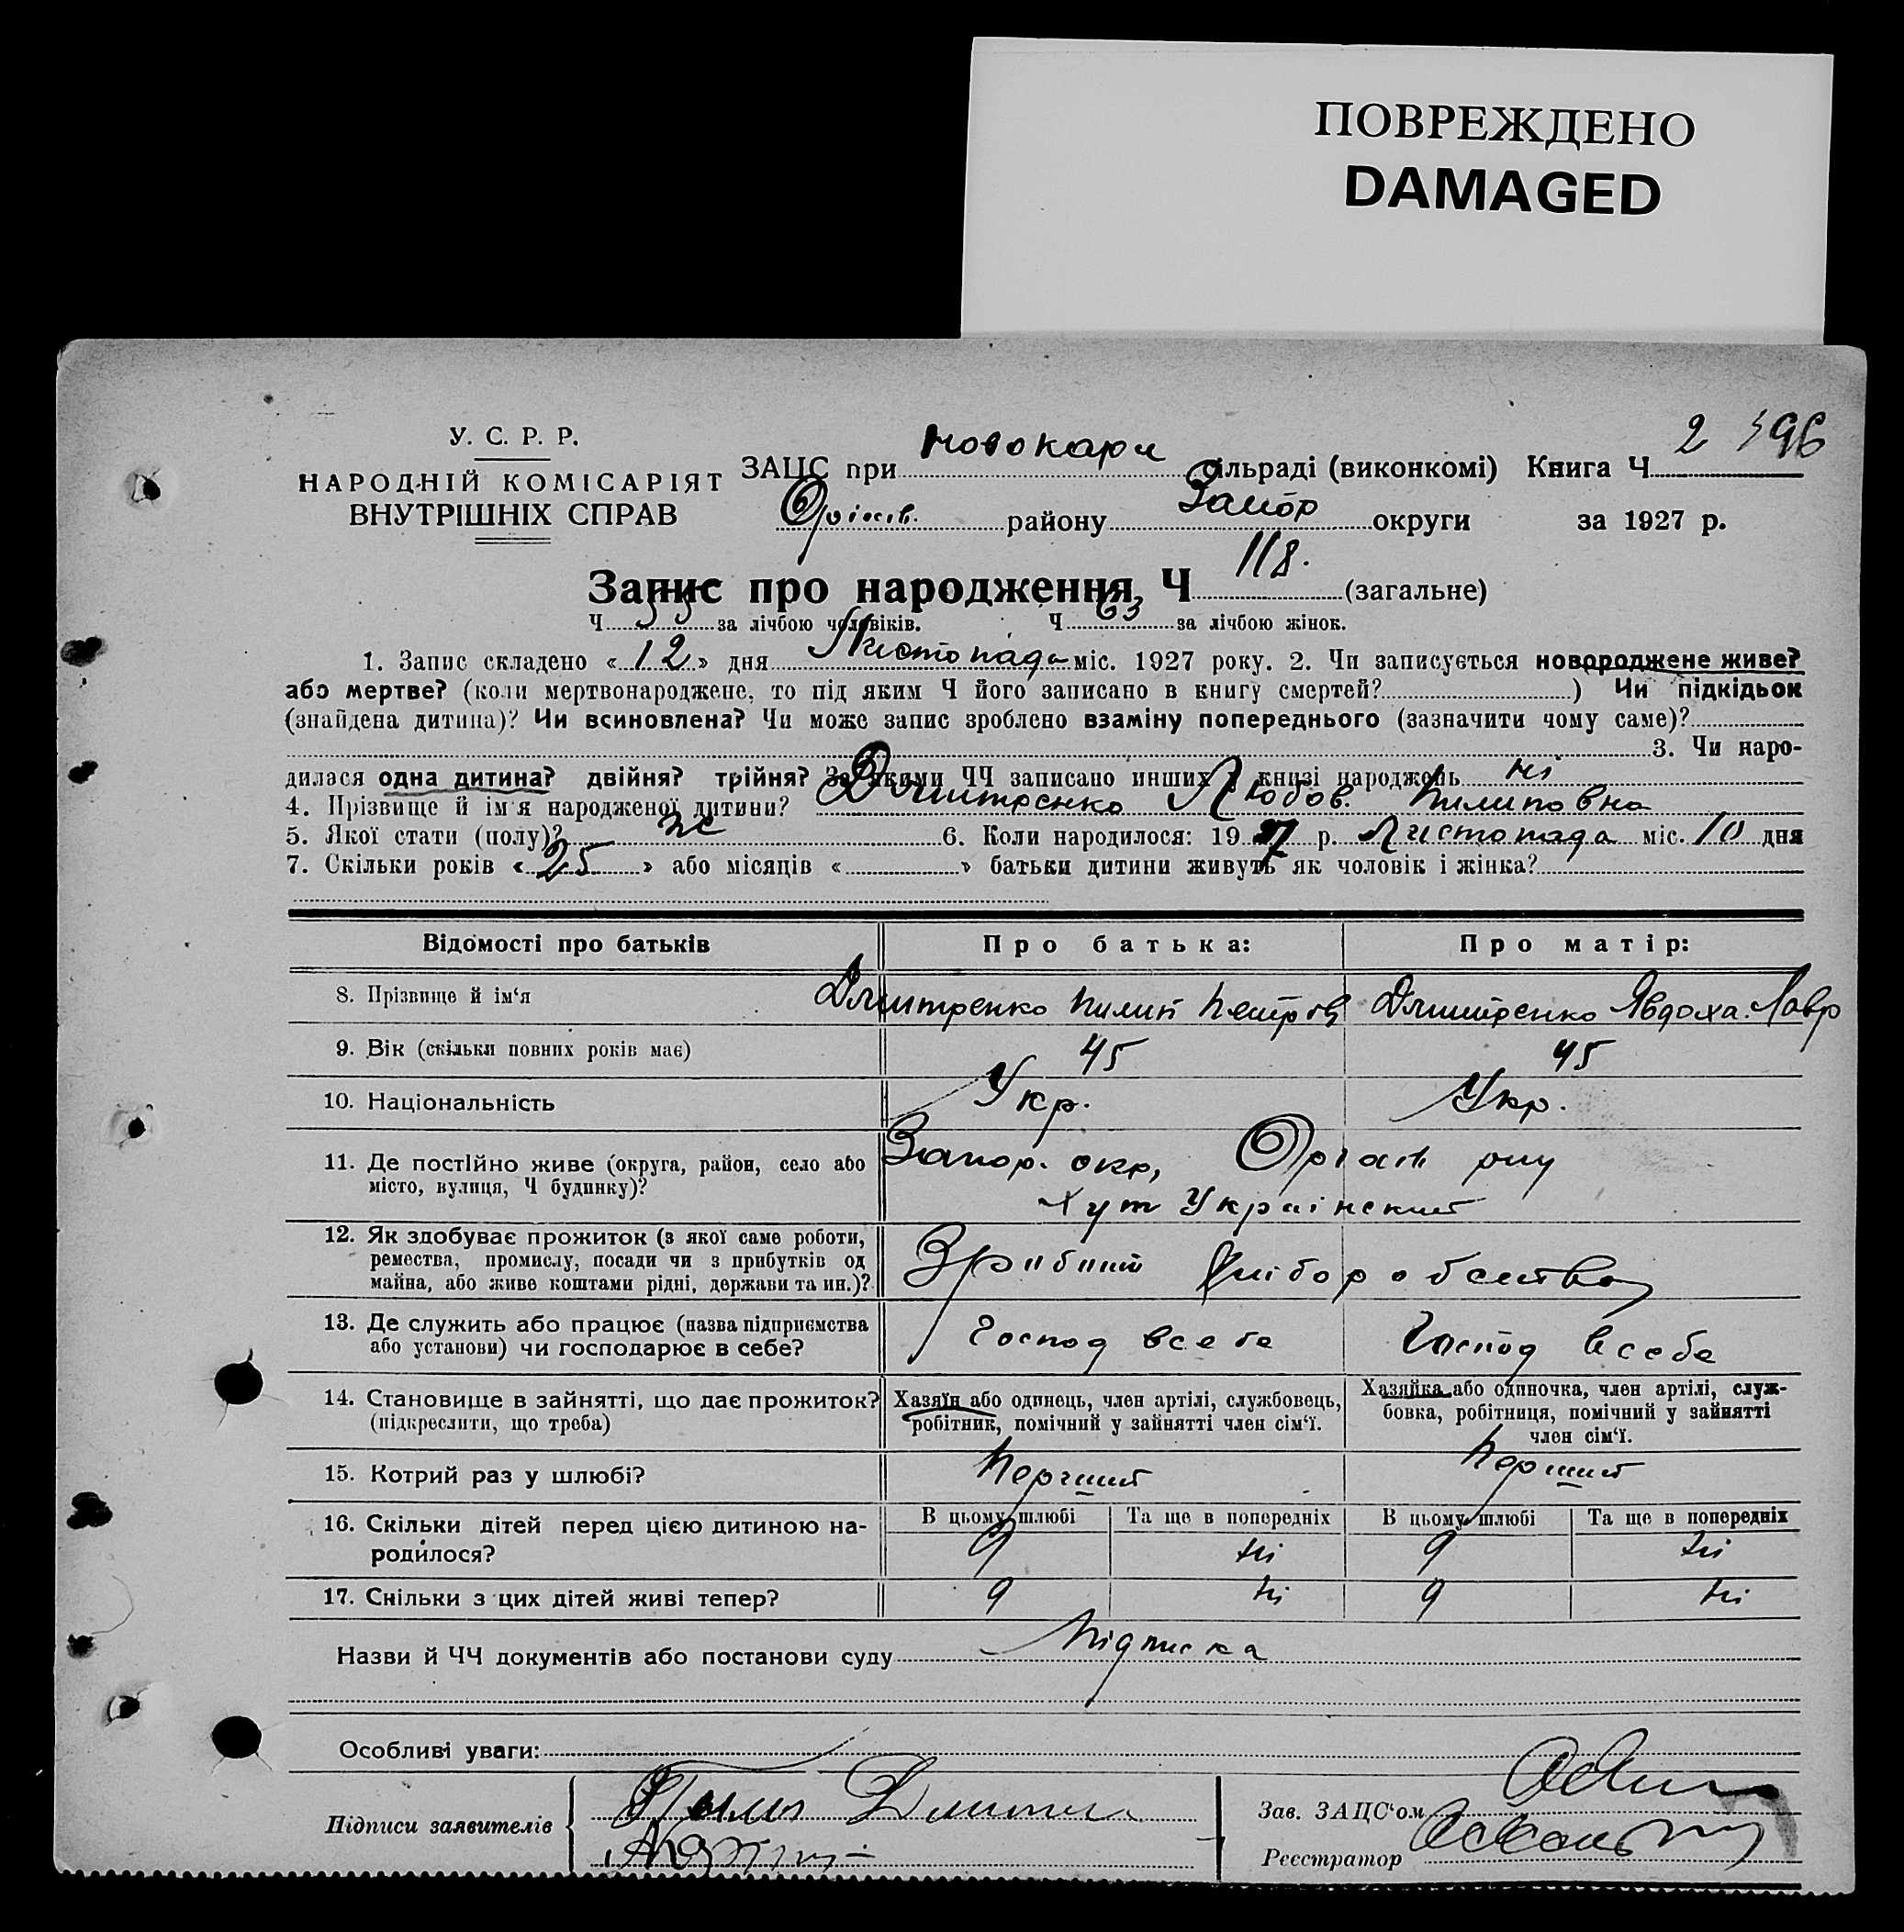 ПОВРЕЖДЕНО
DAMAGED
У. С. Р. Р.
НАРОДНІЙ КОМІСАРІЯТ
ВНУТРІШНІХ СПРАВ
ЗАЦС при Новокарл сільраді (виконкомі) Книга Ч 2 396
Оріхів. району Запор округи за 1927 р.
Запис про народження Ч 118. (загальне)
Ч 55 за лічбою чоловіків. Ч 63 за лічбою жінок.
1. Запис складено « 12 » дня Листопада міс. 1927 року. 2. Чи записується новороджене живе?
або мертве? (коли мертвонароджене, то під яким Ч його записано в книгу смертей? ) Чи підкідьок
(знайдена дитина)? Чи всиновлена? Чи може запис зроблено взаміну попереднього (зазначити чому саме)?
3. Чи наро-
дилася одна дитина? двійня? трійня? За якими ЧЧ записано инших у книзі народжень ні
4. Прізвище й ім'я народженої дитини? Дмитренко Любов. Пилиповна
5. Якої стати (полу)? ж 6. Коли народилося: 1927 р. Листопада міс. 10 дня
7. Скільки років « 25 » або місяців « » батьки дитини живуть як чоловік і жінка?
Відомості про батьків Про батька: Про матір:
8. Прізвище й ім'я Дмитренко Пилип Петров Дмитренко Явдоха Лавр
9. Вік (скільки повних років має) 45 45
10. Національність Укр. Укр.
11. Де постійно живе (округа, район, село або Запор. окр, Оріхів рну
місто, вулиця, Ч будинку)? Хут Українский
12. Як здобуває прожиток (з якої саме роботи,
ремества, промислу, посади чи з прибутків од
майна, або живе коштами рідні, держави та ин.)? Хліборобства
13. Де служить або працює (назва підприємства
або установи) чи господарює в себе? Господ в себе Господ в себе
14. Становище в зайнятті, що дає прожиток? Хазяїн або одинець, член артілі, службовець, Хазяйка або одиночка, член артілі, служ-
(підкреслити, що треба) робітник, помічний у зайнятті член сім'ї. бовка, робітниця, помічний у зайнятті
член сім'ї.
15. Котрий раз у шлюбі? Перший Перший
16. Скільки дітей перед цією дитиною на- В цьому шлюбі Та ще в попередніх В цьому шлюбі Та ще в попередніх
родилося? 9 ні 9 ні
17. Скільки з цих дітей живі тепер? 9 ні 9 ні
Назви й ЧЧ документів або постанови суду Підписка
Особливі уваги:
Підписи заявителів
Зав. ЗАЦС'ом
Реєстратор